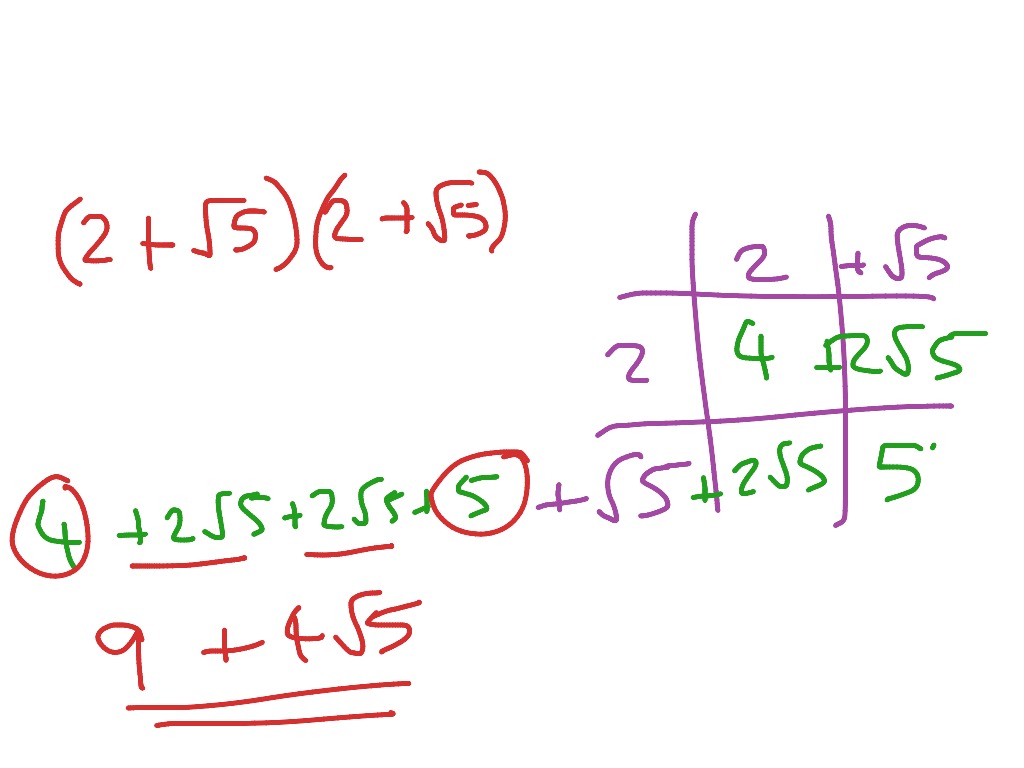 (2 + √5)(2 + √5)
2 + √5
2 4 +2√5
+ √5 + 2√5 5
4 + 2√5 + 2√5 + 5
9 + 4√5